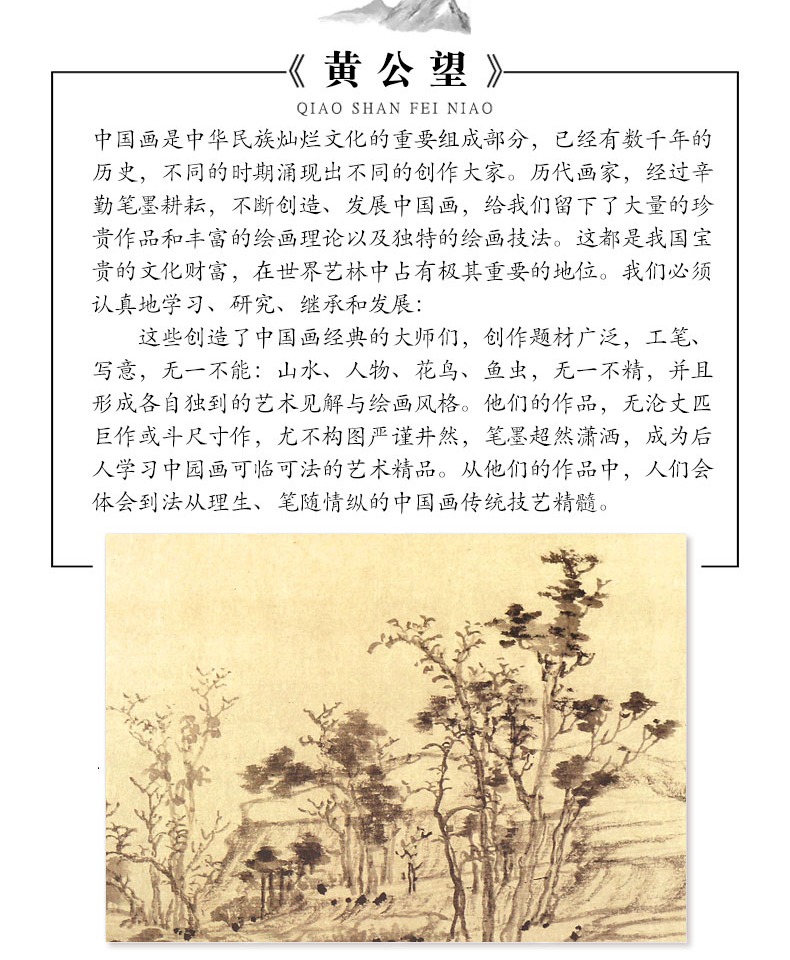 《黄公望》
QIAO SHAN FEI NIAO
中国画是中华民族灿烂文化的重要组成部分，已经有数千年的
历史，不同的时期涌现出不同的创作大家。历代画家，经过辛
勤笔墨耕耘，不断创造、发展中国画，给我们留下了大量的珍
贵作品和丰富的绘画理论以及独特的绘画技法。这都是我国宝
贵的文化财富，在世界艺林中占有极其重要的地位。我们必须
认真地学习、研究、继承和发展：
这些创造了中国画经典的大师们，创作题材广泛，工笔、
写意，无一不能：山水、人物、花鸟、鱼虫，无一不精，并且
形成各自独到的艺术见解与绘画风格。他们的作品，无沦丈匹
巨作或斗尺寸作，尤不构图严谨井然，笔墨超然潇洒，成为后
人学习中园画可临可法的艺术精品。从他们的作品中，人们会
体会到法从理生、笔随情纵的中国画传统技艺精髓。